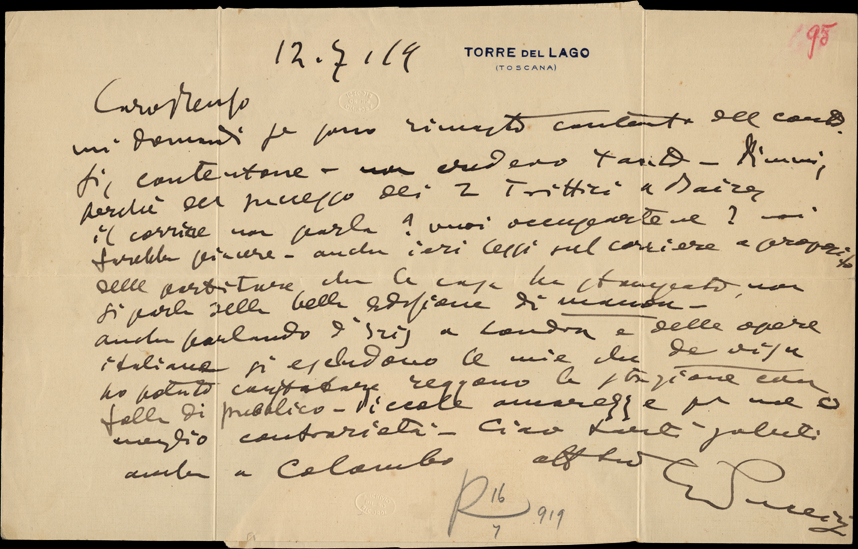 95
12.7.19
TORRE DEL LAGO
(TOSCANA)
Caro Renzo
mi domandi se sono rimasto contento del cont.
Si, contentone – non credevo tanto – Dimmi,
perchè del successo dei 2 Trittici a Baires
il corriere non parla? vuoi occupartene? mi
farebbe piacere – anche ieri lessi sul corriere a proposito
delle partiture che la casa ha stampato, non
si parla della bella edizione di manon –
anche parlando d'Iris a Londra e delle opere
italiane si escludono le mie che de visu
ho potuto constatare reggono la stagione con
folla di pubblico – Piccole amarezze per me o
meglio contrarietà – Ciao tanti saluti
anche a Colombo aff tuo GPuccini
R 16/7 919